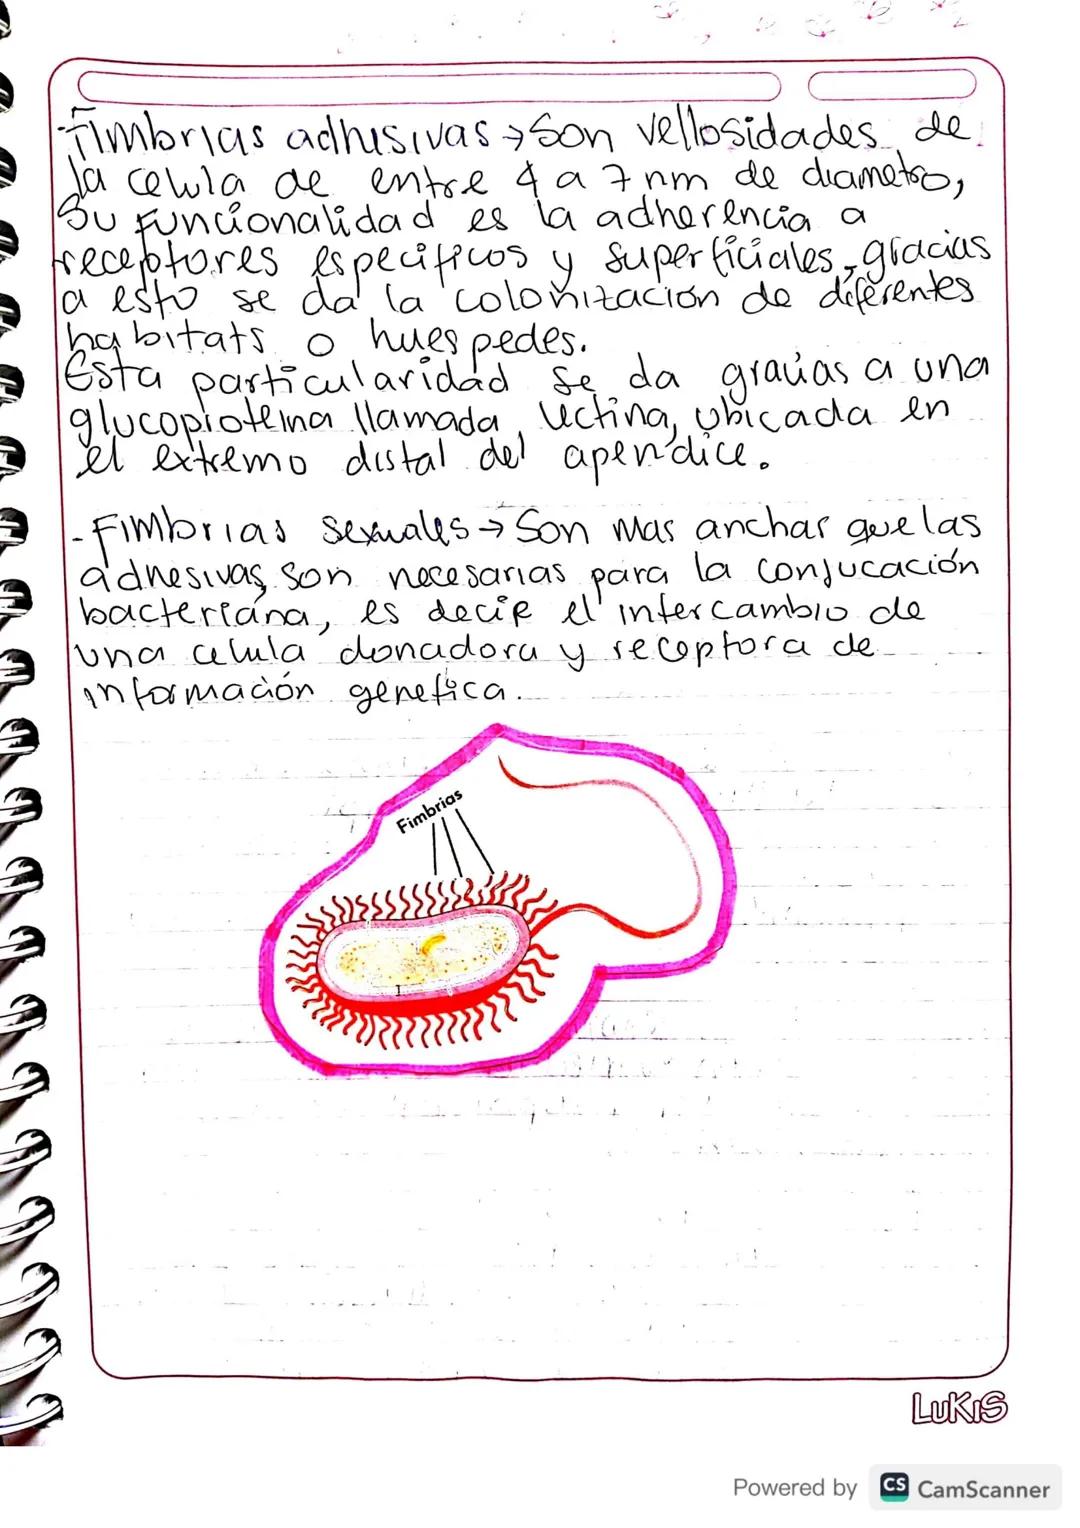 -Fimbrias adhesivas → Son vellosidades de
la celula de entre 4 a 7 nm de diametro,
Su funcionalidad es la adherencia a
receptores especificos y superficiales, gracias
a esto se da la colonización de diferentes
habitats o huespedes.
Esta particularidad se da gracias a una
glucoproteina llamada lectina, ubicada en
el extremo distal del apendice.
-Fimbrias sexuales → Son mas anchar que las
adhesivas, son necesarias para la conjucación
bacteriana, es decir el intercambio de
una celula donadora y receptora de
información genetica.
Fimbrias
LuKIS
Powered by CS CamScanner